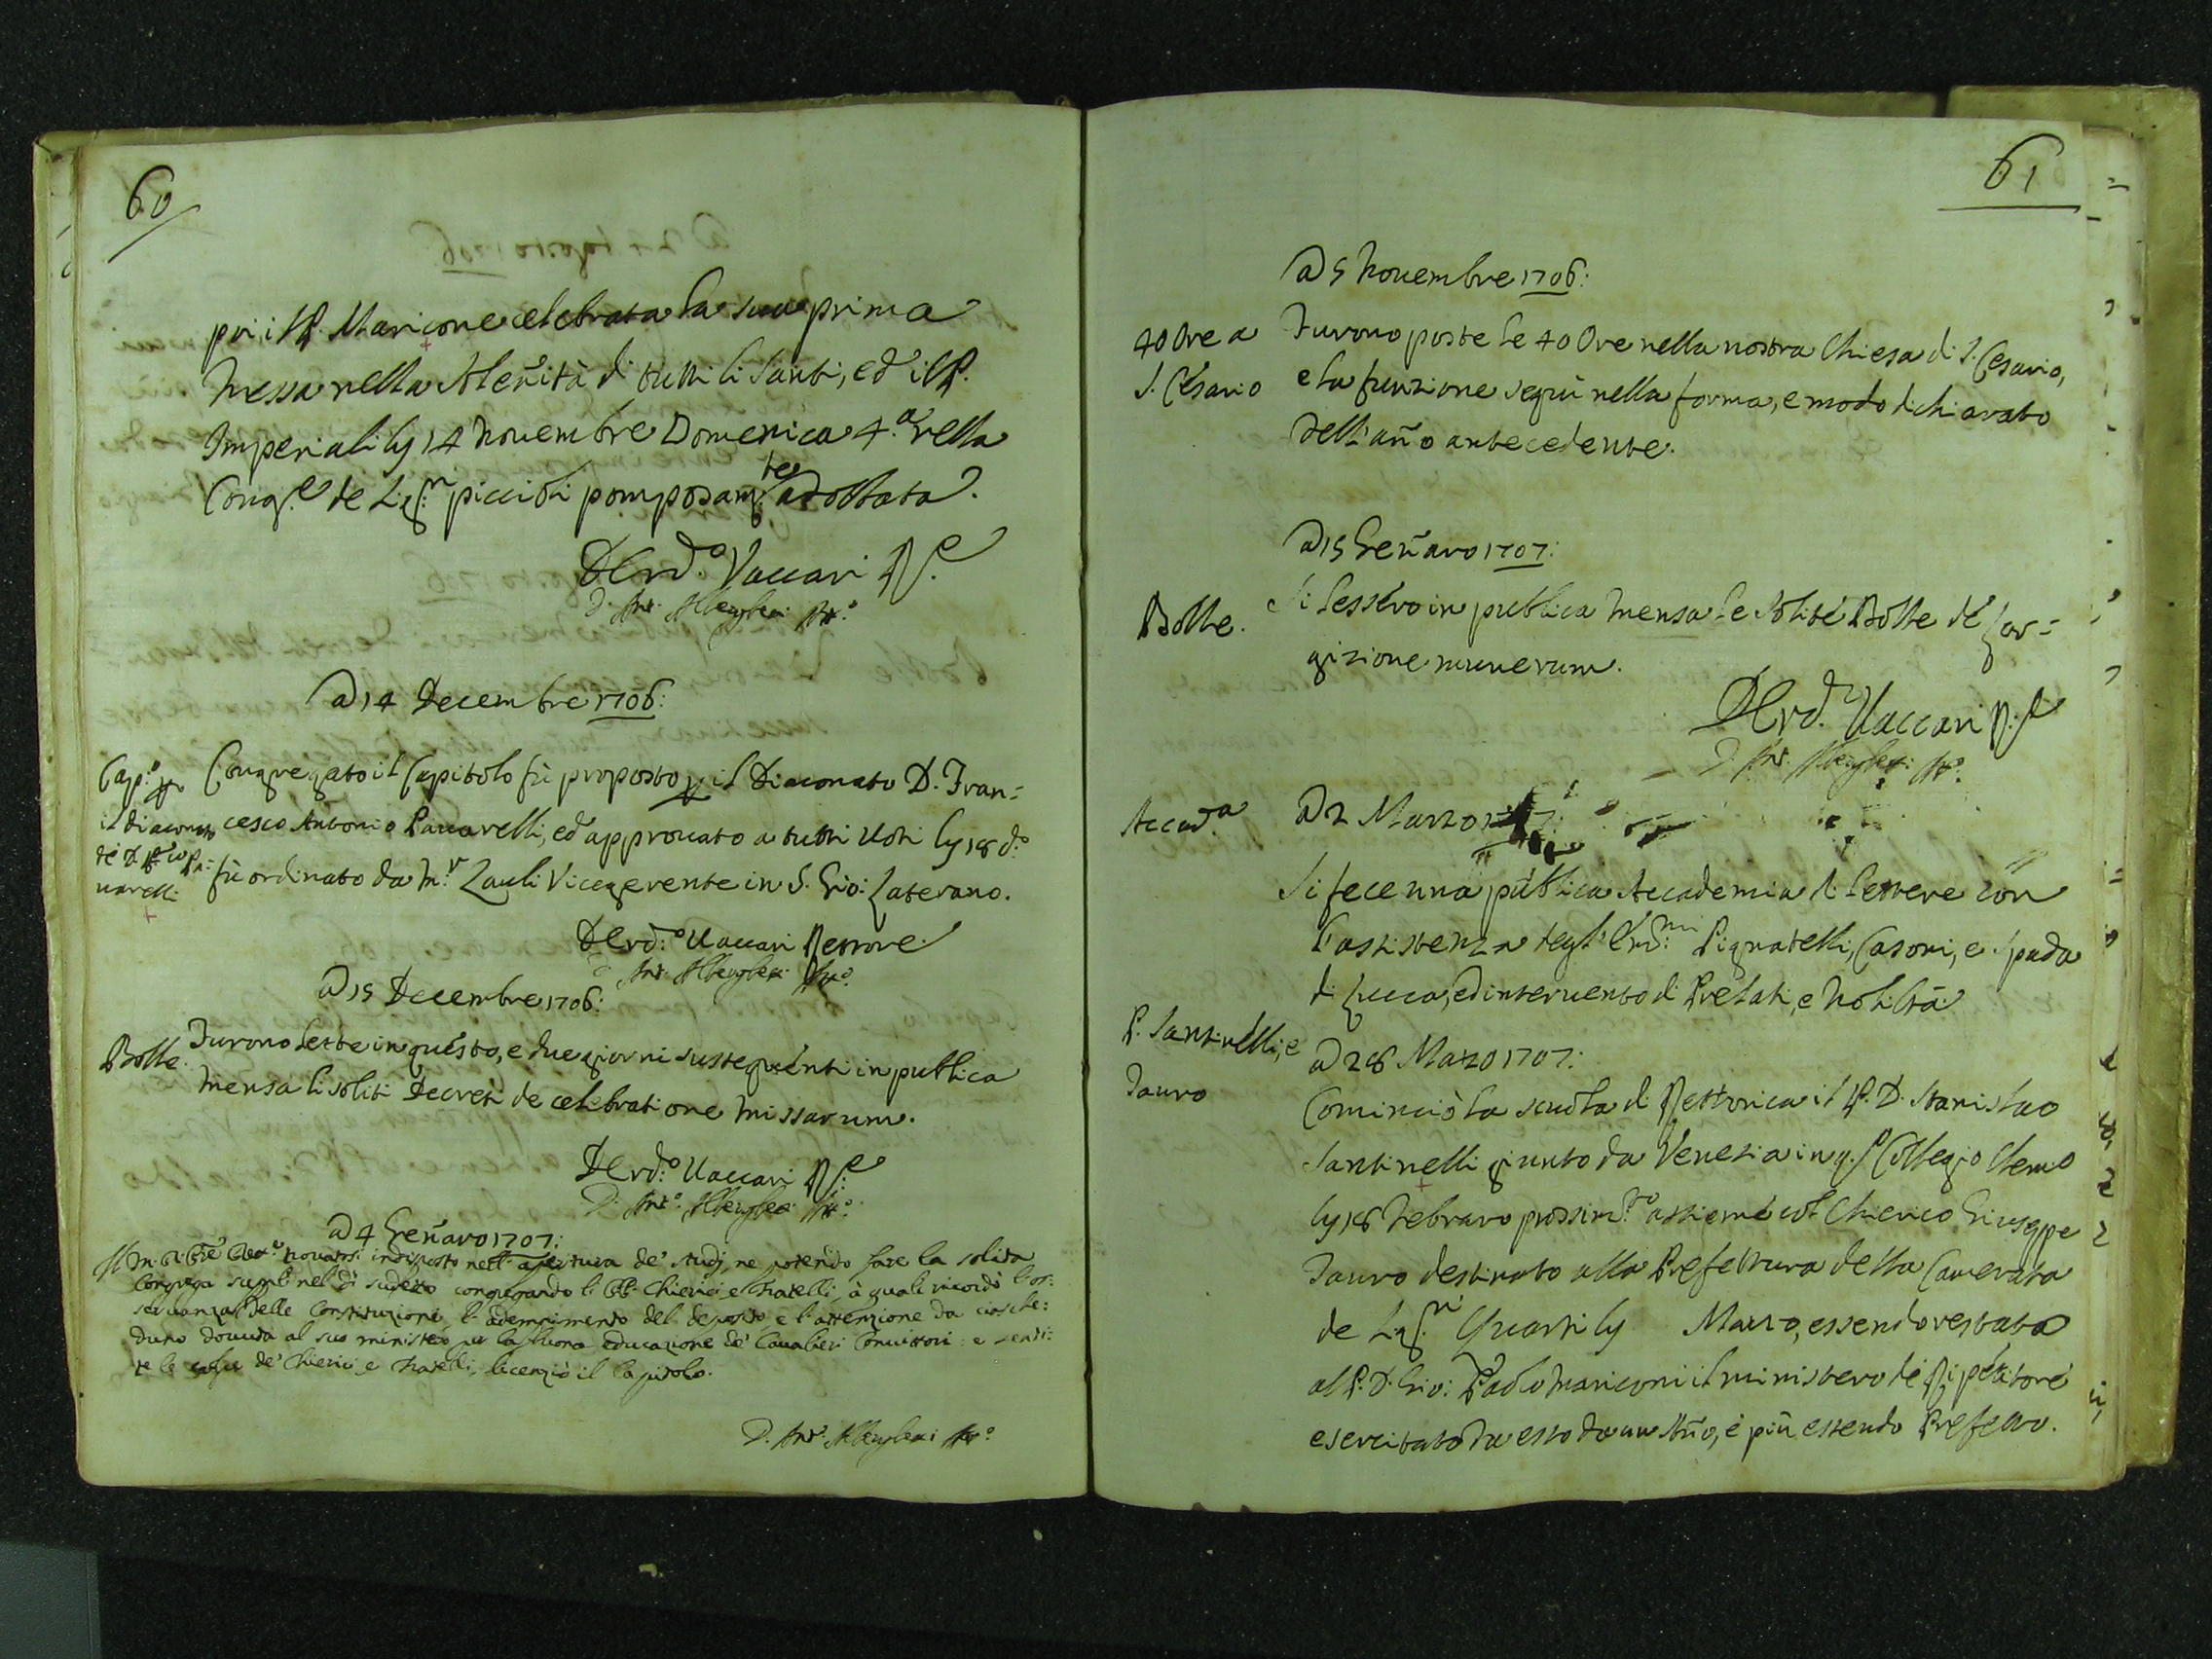 60
poi il P. Maricone celebrata la sua prima
Messa nella solen̄ità di tutti li Santi, ed il P.
Imperiali li 14 Novembre Domenica 4.a nella
Cong.e de Sig.ri piccioli pomposam.te addobbata.
D Erd.o Vaccari R.e
D. Ant. Alberghe
A 14 Decembre 1706:
Cap.o p
il diaconato
de D. Fr.co Pa=
navelli
Congregato il Capitolo fù proposto p il Diaconato D. Fran=
cesco Antonio Panavelli, ed approvato a tutti Voti li 18 d.o
fù ordinato da M.r Zauli Vicegerente in S. Gio: Laterano.
D Erd.o Vaccari Rettore
D Ant. Alberghe
A 15 Decembre 1706:
Bolle.
Furono lette in questo, e due giorni susseguenti in publica
Mensa li soliti Decreti de celebratione Missarum.
D Erd.o Vaccari R.e
D. Ant.o Alberghe
A 4 Gen̄aro 1707:
Il M. R. Pre Rett.e trovatosi indisposto nell'apertura de' studj, ne potendo fare la solita
Congrega supplì nel dì sudetto congregando li PP. Chierici e Fratelli, à quali ricordò l'os:
servanza delle Constituzioni, l'adempimento del deposito e l'attenzione da ciasche:
duno dovuta al suo ministero p la buona educazione de' Cavalieri Convittori: e senti:
te le colpe de' Chierici e Fratelli, licenziò il Capitolo.
D. Ant. Alberghe
61
A 5 Novembre 1706:
40 Ore a
S. Cesario
Furono poste le 40 Ore nella nostra Chiesa di S. Cesario,
e la funzione seguì nella forma, e modo dichiarato
dell'an̄o antecedente.
A 15 Gen̄aro 1707:
Bolle.
Si lessero in publica Mensa le solite Bolle de Lar=
gizione munerum.
D Erd.o Vaccari R.e
D. Ant. Alberghe
Accad.a
A 2 Marzo
Si fece una publica Accademia di lettere con
l'assistenza degl'Em.mi Pignatelli, Casoni, e Spada
di Lucca, ed intervento di Prelati, e Nobiltà
P. Santinelli, e
Tauro
A 28 Marzo 1707:
Cominciò la scuola di Rettorica il P. D. Stanislao
Santinelli giunto da Venezia in q.to Collegio Clem.o
li 18 Febraro prossim.o assieme col Chierico Giuseppe
Tauro destinato alla Prefettura della Camerata
de Sig.ri Quarti li Marzo, essendo restato
al P. D. Gio: Paolo Mariconi il ministero de Ripetitore
esercitato da esso da un An̄o, e più essendo Prefetto.